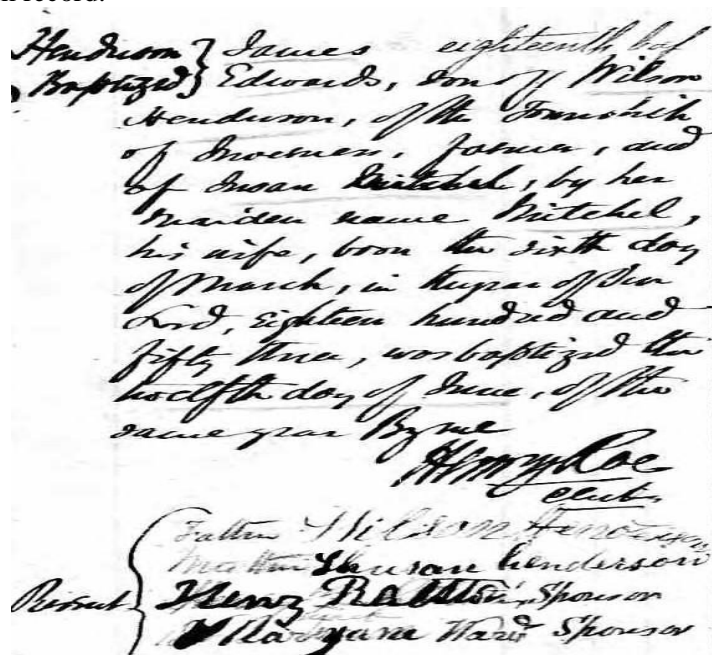 n record.
Henderson } James eighteenth bap
Baptized } Edwards, son of Wilson
Henderson, of the Township
of Inverness, farmer, and
of Susan Mitchel, by her
maiden name Mitchel,
his wife, born the sixth day
of March, in the year of Our
Lord, Eighteen hundred and
fifty three, was baptized this
twelfth day of June, of the
same year By me
Henry Roe
Father Wilson Henderson
Mother Shusan henderson
Present Henry Sponsor
Maryane Ward Sponsor